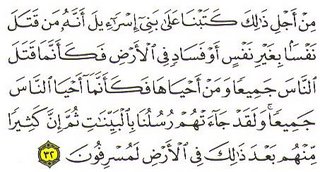 مِنْ أَجْلِ ذَٰلِكَ كَتَبْنَا عَلَىٰ بَنِىٓ إِسْرَٰٓءِيلَ أَنَّهُۥ مَن قَتَلَ
نَفْسًۢا بِغَيْرِ نَفْسٍ أَوْ فَسَادٍ فِى ٱلْأَرْضِ فَكَأَنَّمَا قَتَلَ
ٱلنَّاسَ جَمِيعًا وَمَنْ أَحْيَاهَا فَكَأَنَّمَآ أَحْيَا ٱلنَّاسَ
جَمِيعًا ۚ وَلَقَدْ جَآءَتْهُمْ رُسُلُنَا بِٱلْبَيِّنَٰتِ ثُمَّ إِنَّ كَثِيرًا
مِّنْهُم بَعْدَ ذَٰلِكَ فِى ٱلْأَرْضِ لَمُسْرِفُونَ ٣٢